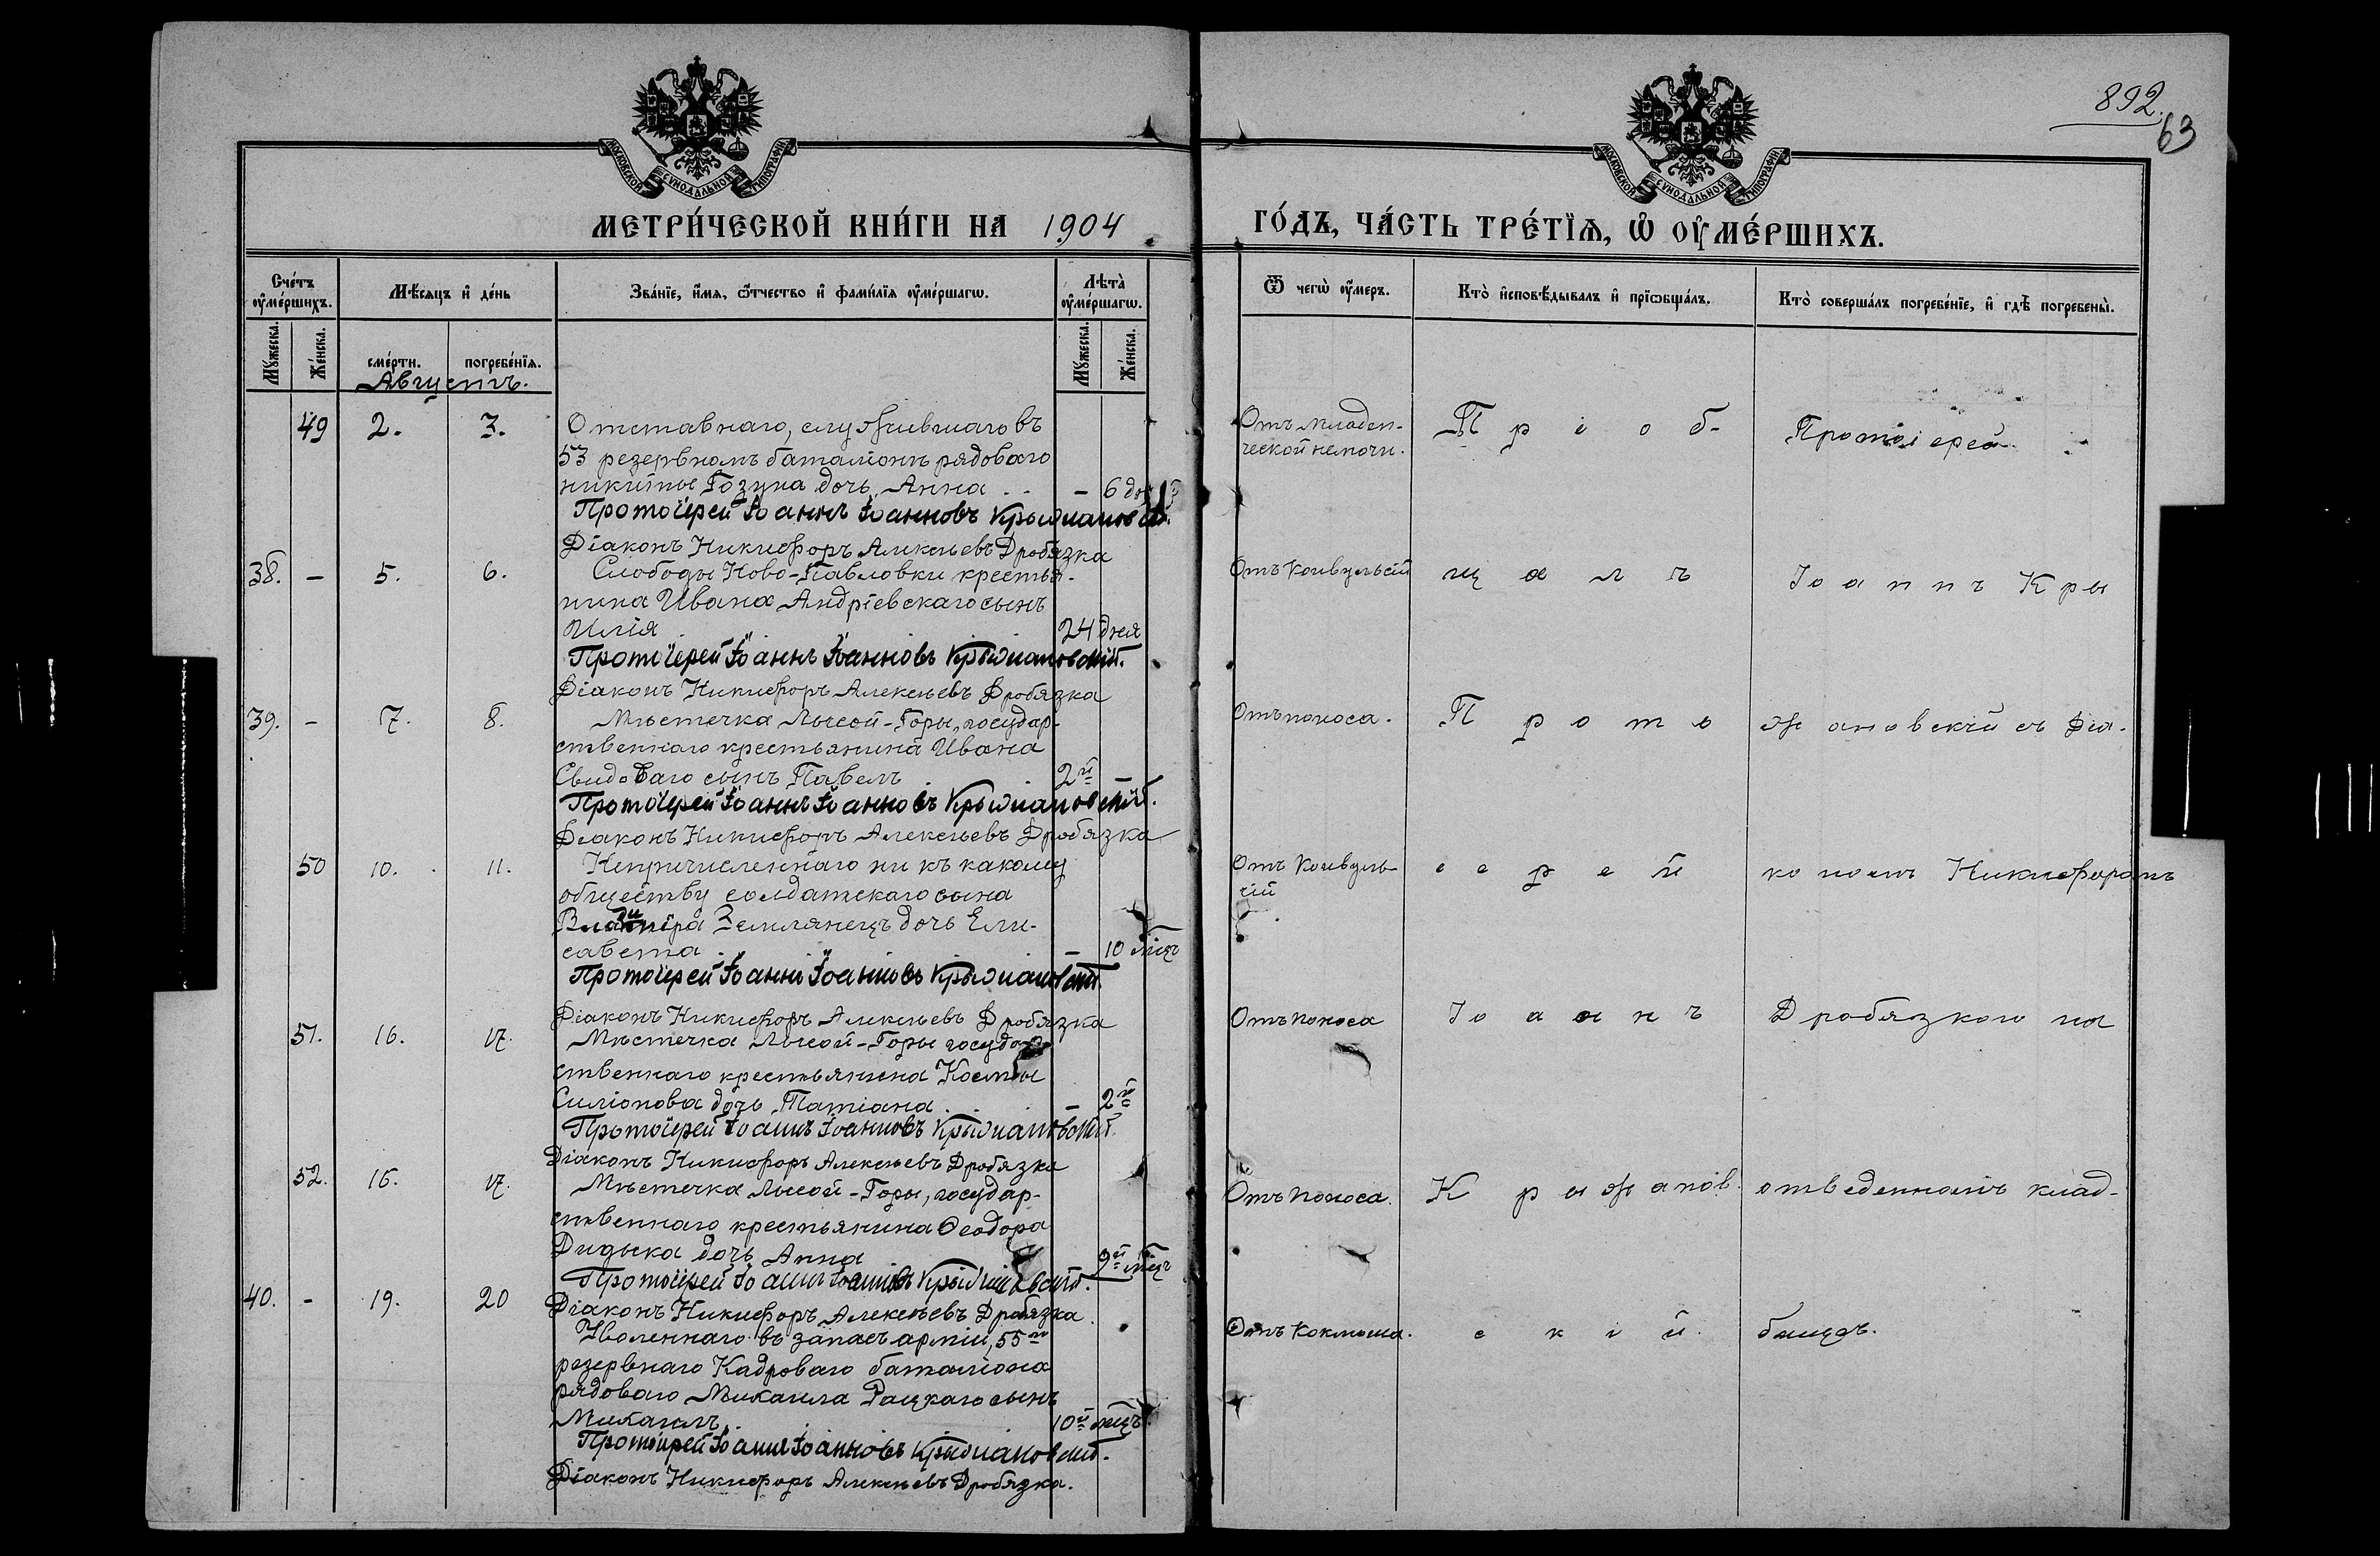 892.
63
МОСКОВСКОЙ СѴНОДАЛЬНОЙ ТИПОГРАФІИ
МОСКОВСКОЙ СѴНОДАЛЬНОЙ ТИПОГРАФІИ
МЕТРИ́ЧЕСКОЙ КНИ́ГИ НА 1904
ГО́ДЪ, ЧА́СТЬ ТРЕ́ТЇѦ, Ѡ ОУ҆МЕ́РШИХЪ.
Сче́тъ оу҆ме́ршихъ.
Мѣ́сяцъ и҆ де́нь
Зва́нїе, и҆́мѧ, ѻ҆́тчество и҆ фами́лїѧ оу҆ме́ршагѡ.
Лѣта̀ оу҆ме́ршагѡ.
Ѿ чегѡ̀ оу҆́меръ.
Кто̀ и҆сповѣ́дывалъ и҆ прїѡбща́лъ.
Кто̀ соверша́лъ погребе́нїе, и҆ гдѣ̀ погребены̀.
Мꙋ́жеска.
Же́нска.
сме́рти.
погребе́нїѧ.
Мꙋ́жеска.
Же́нска.
Августъ.
49 2. 3. Отставнаго, служившаго въ
53 резервномъ баталіонѣ рядоваго
Никиты Гозуна дочь Анна . . – 6
Протоіерей Іоаннъ Іоанновъ Крыжановскій.
Діаконъ Никифоръ Алексѣевъ Дробязка
Отъ младен-
ческой немочи.
П р і о б-
Протоіерей
38. – 5. 6. Слободы Ново-Павловки крестья-
нина Ивана Андріевскаго сынъ
Илія 24 дня
Протоіерей Іоаннъ Іоанновъ Крыжановскій.
Діаконъ Никифоръ Алексѣевъ Дробязка
Отъ конвульсій
щ а л ъ
Іоаннъ Кры
39. – 7. 8. Мѣстечка Лысой-Горы, государ-
ственнаго крестьянина Ивана
Свидоваго сынъ Павелъ 2й
Протоіерей Іоаннъ Іоанновъ Крыжановскій.
Діаконъ Никифоръ Алексѣевъ Дробязка
Отъ поноса.
П р о т о
жановскій съ Діа-
50 10. 11. Непричисленнаго ни къ какому
обществу солдатскаго сына
Землянецъ дочь Ели-
савета – 10 мѣц
Протоіерей Іоаннъ Іоанновъ Крыжановскій.
Діаконъ Никифоръ Алексѣевъ Дробязка
Отъ конвуль-
сій
і е р е й
кономъ Никифоромъ
51. 16. 17. Мѣстечка Лысой-Горы государ-
ственнаго крестьянина Космы
Силіонова дочь Татіана . . – 2й
Протоіерей Іоаннъ Іоанновъ Крыжановскій.
Діаконъ Никифоръ Алексѣевъ Дробязка
Отъ поноса
І о а н н ъ
Дробязкою на
52. 16. 17. Мѣстечка Лысой-Горы, государ-
ственнаго крестьянина Ѳеодора
Дидыка дочь Анна 9й мѣцъ
Протоіерей Іоаннъ Іоанновъ Крыжановскій.
Діаконъ Никифоръ Алексѣевъ Дробязка.
Отъ поноса.
К р ы ж а н о в-
отведенномъ клад-
40. – 19. 20 Уволеннаго въ запасъ арміи, 55го
резервнаго Кадроваго баталіона
рядоваго Михаила Рацкаго сынъ
Михаилъ. 10й мѣцъ.
Протоіерей Іоаннъ Іоанновъ Крыжановскій.
Діаконъ Никифоръ Алексѣевъ Дробязка.
Отъ коклюша.
с к і й.
бищѣ.